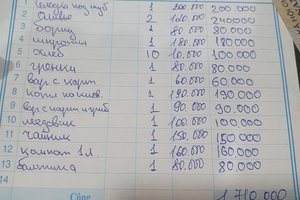 1 селедка под шуб 1 200.000 200.000
2 Оливье 2 120.000 240000
3 борщ 1 80.000 80.000
4 1 180.000 180.000
5 хлеб 10 10.000 100.000
6 гренки 1 80.000 80.000
7 вар. с карт 1 60.000 60.000
8 котл по киев. 1 190.000 190.000
9 вар с карт и гриб 1 90.000 90.000
10 медовик 1 100.000 100.000
11 чайник 1 150.000 150.000
12 компот 1л. 1 160.000 160.000
13 балтика 1 80.000 80.000
14
Cộng 1.710.000